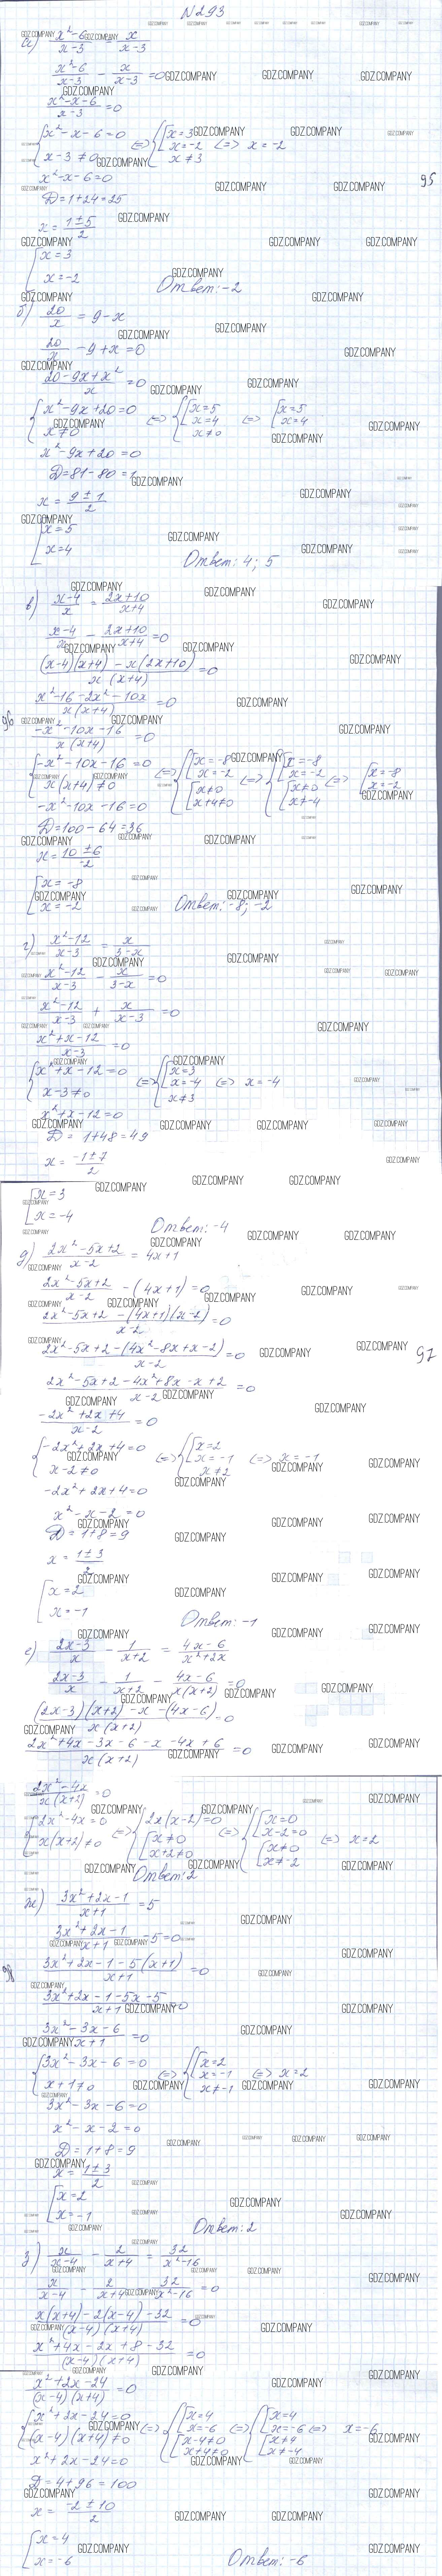 N293
а) (x²-6)/(x-3) = x/(x-3)
(x²-6)/(x-3) - x/(x-3) = 0
(x²-x-6)/(x-3) = 0
{x²-x-6=0 {[x=3
x-3≠0 (=>) x=-2 (=>) x=-2
x≠3
x²-x-6=0
D=1+24=25
x = (1±5)/2
[x=3
x=-2
Ответ: -2
б) 20/x = 9-x
20/x - 9+x=0
(20-9x+x²)/x = 0
{x²-9x+20=0 (=>) {[x=5 x=4 (=>) [x=5
x≠0 x≠0 x=4
x²-9x+20=0
D=81-80=1
x = (9±1)/2
[x=5
x=4
Ответ: 4; 5
в) (x-4)/x = (2x+10)/(x+4)
(x-4)/x - (2x+10)/(x+4) = 0
((x-4)(x+4) - x(2x+10))/(x(x+4)) = 0
(x²-16-2x²-10x)/(x(x+4)) = 0
(-x²-10x-16)/(x(x+4)) = 0
{-x²-10x-16=0 (=>) {[x=-8 x=-2 (=>) {[x=-8 x=-2 (=>) [x=-8
x(x+4)≠0 [x≠0 x+4≠0 [x≠0 x≠-4 x=-2
-x²-10x-16=0
D=100-64=36
x = (10±6)/-2
[x=-8
x=-2
Ответ: -8; -2
г) (x²-12)/(x-3) = x/(3-x)
(x²-12)/(x-3) - x/(3-x) = 0
(x²-12)/(x-3) + x/(x-3) = 0
(x²+x-12)/(x-3) = 0
{x²+x-12=0 (=>) {[x=3 x=-4 (=>) x=-4
x-3≠0 x≠3
x²+x-12=0
D = 1+48=49
x = (-1±7)/2
[x=3
x=-4
Ответ: -4
д) (2x²-5x+2)/(x-2) = 4x+1
(2x²-5x+2)/(x-2) - (4x+1) = 0
(2x²-5x+2-(4x+1)(x-2))/(x-2) = 0
(2x²-5x+2-(4x²-8x+x-2))/(x-2) = 0
(2x²-5x+2-4x²+8x-x+2)/(x-2) = 0
(-2x²+2x+4)/(x-2) = 0
{-2x²+2x+4=0 (=>) {[x=2 x=-1 (=>) x=-1
x-2≠0 x≠2
-2x²+2x+4=0
x²-x-2=0
D=1+8=9
x = (1±3)/2
[x=2
x=-1
Ответ: -1
е) (2x-3)/x - 1/(x+2) = (4x-6)/(x²+2x)
(2x-3)/x - 1/(x+2) - (4x-6)/(x(x+2)) = 0
((2x-3)(x+2)-x-(4x-6))/(x(x+2)) = 0
(2x²+4x-3x-6-x-4x+6)/(x(x+2)) = 0
(2x²-4x)/(x(x+2)) = 0
{2x²-4x=0 (=>) {2x(x-2)=0 (=>) {[x=0 x-2=0 (=>) x=2
x(x+2)≠0 [x≠0 x+2≠0 [x≠0 x≠-2
Ответ: 2
ж) (3x²+2x-1)/(x+1) = 5
(3x²+2x-1)/(x+1) - 5=0
(3x²+2x-1-5(x+1))/(x+1) = 0
(3x²+2x-1-5x-5)/(x+1) = 0
(3x²-3x-6)/(x+1) = 0
{3x²-3x-6=0 (=>) {[x=2 x=-1 (=>) x=2
x+1≠0 x≠-1
3x²-3x-6=0
x²-x-2=0
D=1+8=9
x = (1±3)/2
[x=2
x=-1
Ответ: 2
з) x/(x-4) - 2/(x+4) = 32/(x²-16)
x/(x-4) - 2/(x+4) - 32/(x²-16) = 0
(x(x+4)-2(x-4)-32)/((x-4)(x+4)) = 0
(x²+4x-2x+8-32)/((x-4)(x+4)) = 0
(x²+2x-24)/((x-4)(x+4)) = 0
{x²+2x-24=0 (=>) {[x=4 x=-6 (=>) {[x=4 x=-6 (=>) x=-6
(x-4)(x+4)≠0 [x-4≠0 x+4≠0 [x≠4 x≠-4
x²+2x-24=0
D=4+96=100
x = (-2±10)/2
[x=4
x=-6
Ответ: -6
95
96
97
98
GDZ.COMPANY